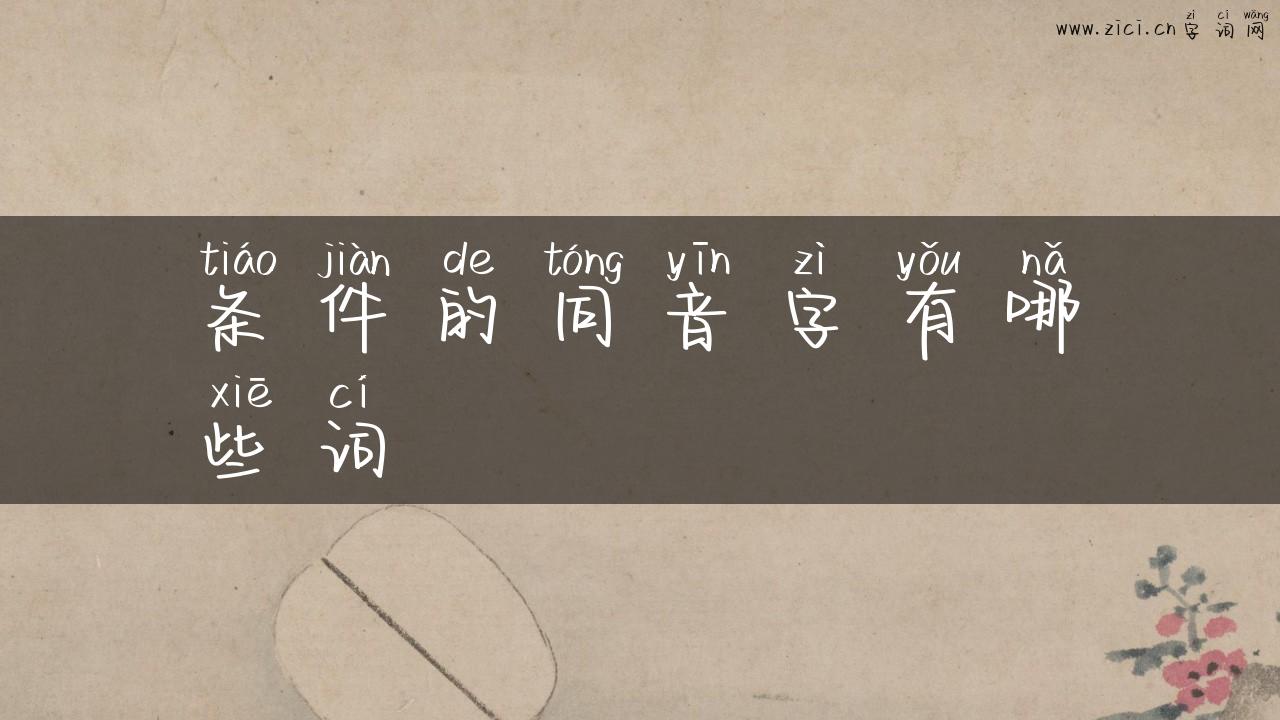 zì cí wǎng
www.zici.cn 字 词 网
tiáo jiàn de tóng yīn zì yǒu nǎ
条 件 的 同 音 字 有 哪
xiē cí
些 词